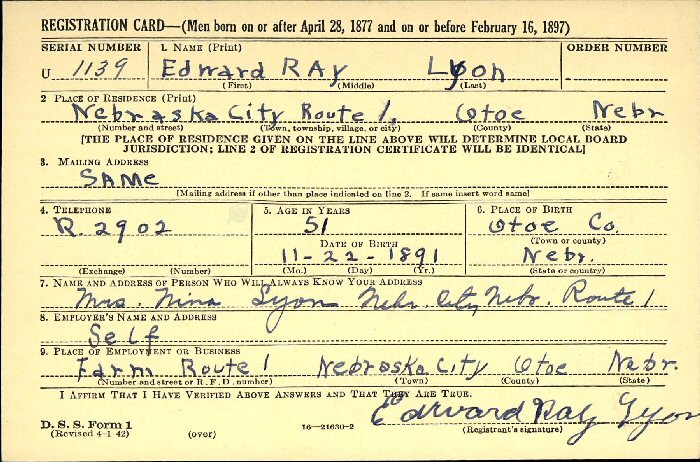 REGISTRATION CARD—(Men born on or after April 28, 1877 and on or before February 16, 1897)
SERIAL NUMBER 1. NAME (Print) ORDER NUMBER
U 1139 Edward RAY Lyon
(First) (Middle) (Last)
2 PLACE OF RESIDENCE (Print)
Nebraska City Route 1. Otoe Nebr
(Number and street) (Town, township, village, or city) (County) (State)
[THE PLACE OF RESIDENCE GIVEN ON THE LINE ABOVE WILL DETERMINE LOCAL BOARD
JURISDICTION; LINE 2 OF REGISTRATION CERTIFICATE WILL BE IDENTICAL]
3. MAILING ADDRESS
SAMe
[Mailing address if other than place indicated on line 2. If same insert word same]
4. TELEPHONE 5. AGE IN YEARS 6. PLACE OF BIRTH
R 2902 51 Otoe Co.
DATE OF BIRTH (Town or county)
11-22-1891 Nebr.
(Exchange) (Number) (Mo.) (Day) (Yr.) (State or country)
7. NAME AND ADDRESS OF PERSON WHO WILL ALWAYS KNOW YOUR ADDRESS
Mrs. Nina Lyon Nebr. City, Nebr. Route 1
8. EMPLOYER'S NAME AND ADDRESS
Self
9. PLACE OF EMPLOYMENT OR BUSINESS
Farm Route 1 Nebraska City Otoe Nebr.
(Number and street or R. F. D. number) (Town) (County) (State)
I AFFIRM THAT I HAVE VERIFIED ABOVE ANSWERS AND THAT THEY ARE TRUE.
Edward Ray Lyon
D. S. S. Form 1
(Revised 4-1-42) (over) 16—21630-2 (Registrant's signature)